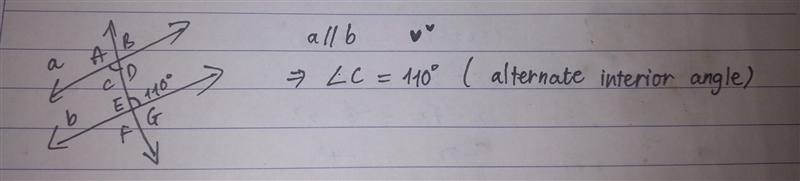 a
A B
C D
E 110°
b
F G
a // b
⇒ ∠C = 110° ( alternate interior angle)